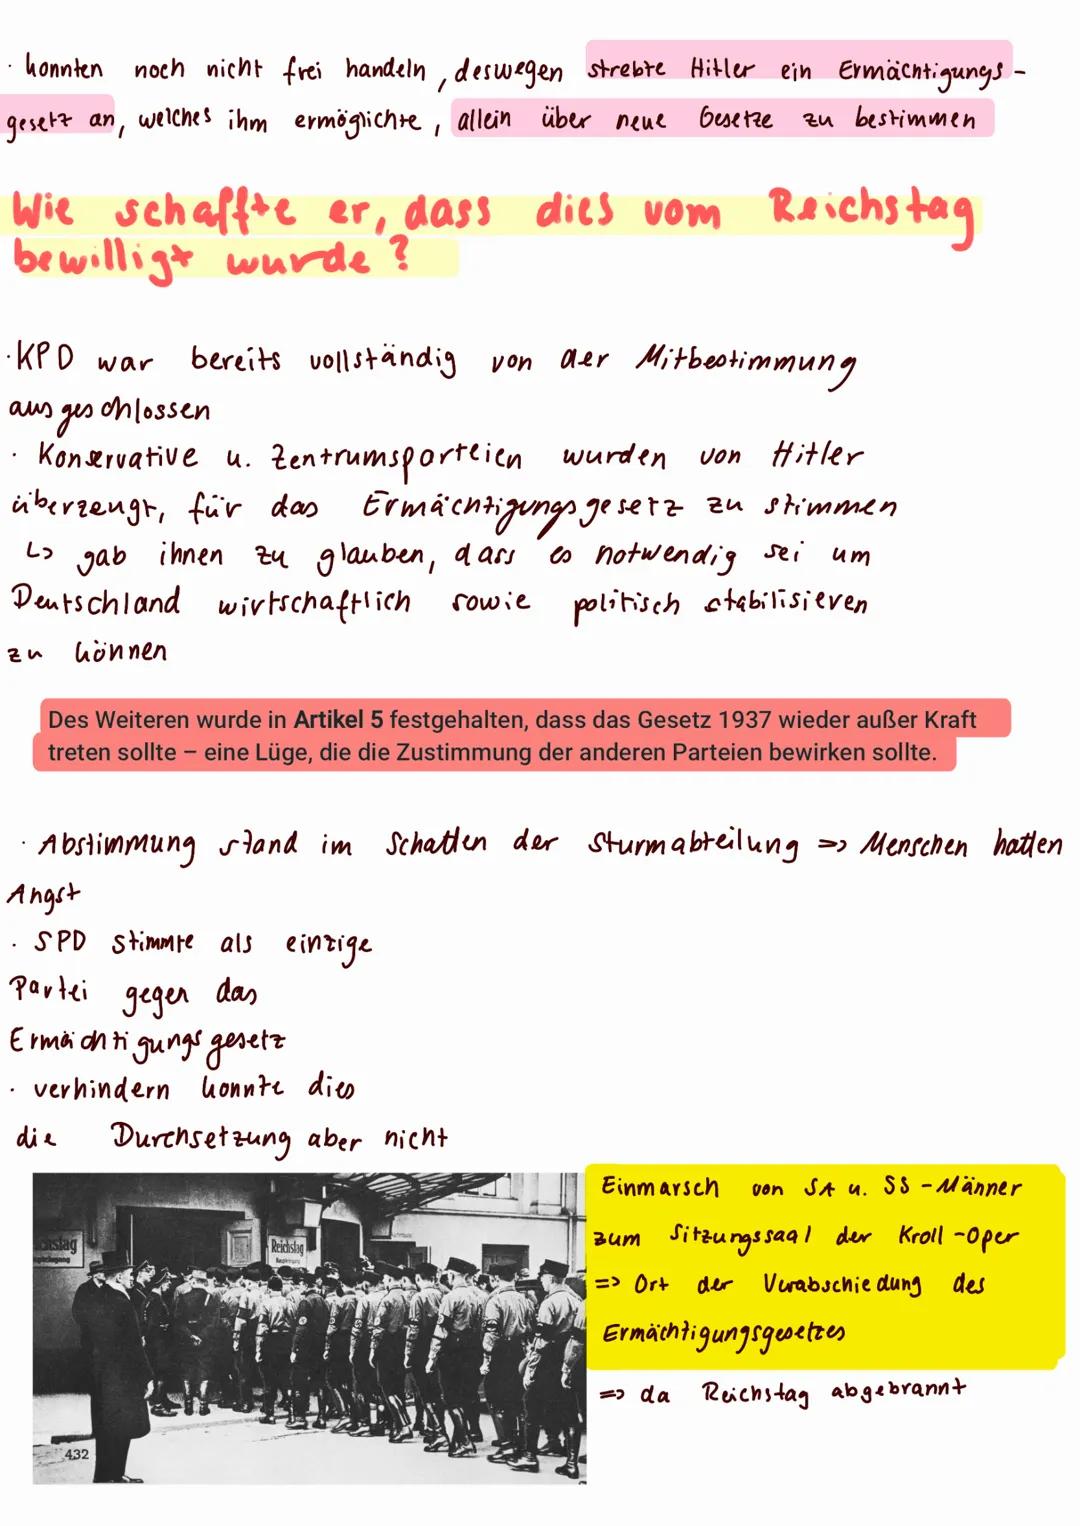 · konnten noch nicht frei handeln, deswegen strebte Hitler ein Ermächtigungs-
gesetz an, welches ihm ermöglichte, allein über neue Gesetze zu bestimmen
Wie schaffte er, dass dies vom Reichstag
bewilligt wurde?
· KPD war bereits vollständig von der Mitbestimmung
ausgeschlossen
· Konservative u. Zentrumsparteien wurden von Hitler
überzeugt, für das Ermächtigungsgesetz zu stimmen
↳ gab ihnen zu glauben, dass es notwendig sei um
Deutschland wirtschaftlich sowie politisch stabilisieren
zu können
Des Weiteren wurde in Artikel 5 festgehalten, dass das Gesetz 1937 wieder außer Kraft
treten sollte – eine Lüge, die die Zustimmung der anderen Parteien bewirken sollte.
· Abstimmung stand im Schatten der Sturmabteilung => Menschen hatten
Angst
· SPD stimmte als einzige
Partei gegen das
Ermächtigungsgesetz
· verhindern konnte dies
die Durchsetzung aber nicht
Reichstag
432
Einmarsch von SA u. SS-Männer
zum Sitzungssaal der Kroll-Oper
=> Ort der Verabschiedung des
Ermächtigungsgesetzes
=> da Reichstag abgebrannt